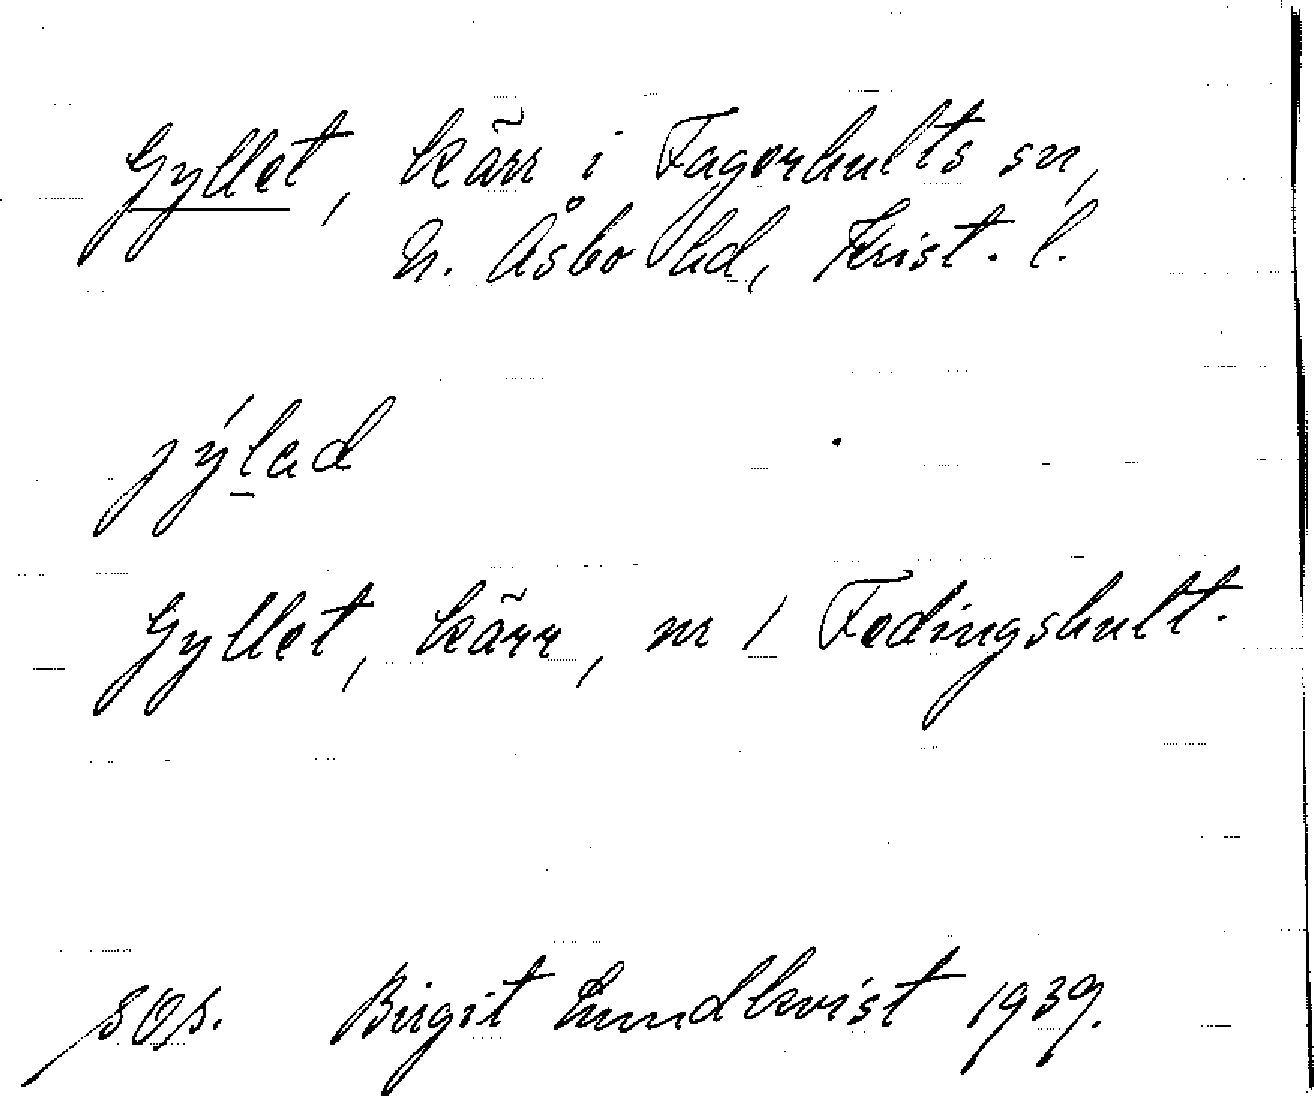 Gyllet, kärr i Fagerhults sn,
N. Åsbo hd, Krist. l.
jýlad
Gyllet, kärr, nr 1 Fedingshult.
Birgit Lundkvist 1939.